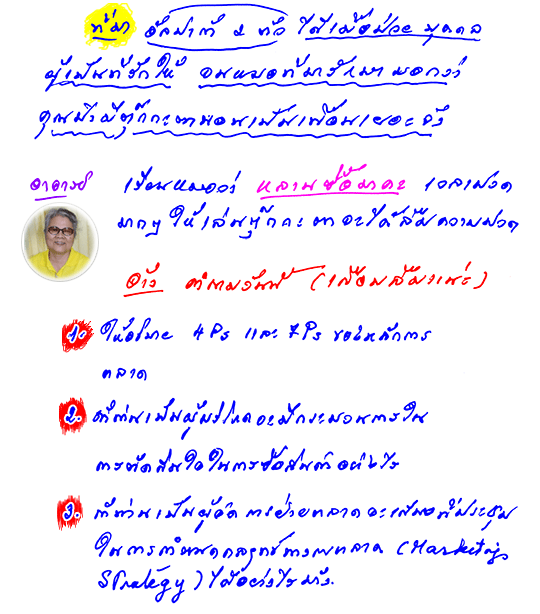 ที่มา อัลปาก้า 2 ตัว ได้เมื่อป่วย บุคคล
ผู้เป็นที่รักให้ จนหมอที่มารักษา บอกว่า
คุณมีตุ๊กกะตานอนเป็นเพื่อนเยอะจัง
อาจารย์ เรียนหมอว่า หลานซื้อมาค่ะ เวลาปวด
มากๆ ให้เล่นตุ๊กกะตาจะได้ลืมความปวด
อ้าง คำถามวันนี้ (เตือนลืมงแน่ะ)
1. ให้อธิบาย 4Ps และ 7Ps ของหลักการ
ตลาด
2. ถ้าท่านเป็นผู้บริโภคจะมีกระบวนการใน
การตัดสินใจในการซื้อสินค้าอย่างไร
3. ถ้าท่านเป็นผู้จัดการฝ่ายตลาดจะเสนอที่ประชุม
ในการกำหนดกลยุทธ์ทางการตลาด (Marketing
Strategy) ได้อย่างไรบ้าง.